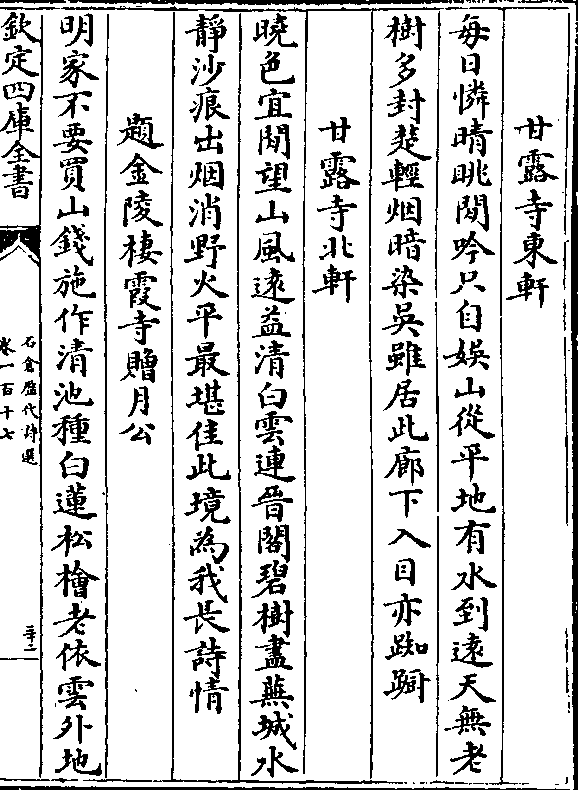 甘露寺東軒
每日憐晴眺閒吟只自娛山從平地有水到遠天無老
樹多封楚輕烟暗染吳雖居此廊下入目亦踟蹰
甘露寺北軒
曉色宜閒望山風遠益清白雲連晉閣碧樹盡蕪城水
靜沙痕出烟消野火平最堪佳此境為我長詩情
題金陵棲霞寺贈月公
明家不要買山錢施作清池種白蓮松檜老依雲外地
欽定四庫全書
石倉歷代詩選
卷一百十七
三十二